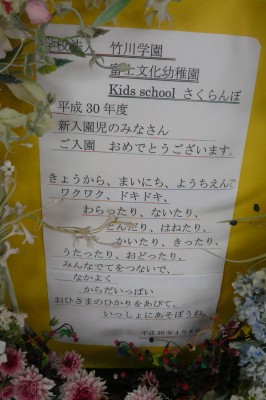 学校法人 竹川学園
富士文化幼稚園
Kids school さくらんぼ
平成30年度
新入園児のみなさん
ご入園 おめでとうございます。
きょうから、まいにち、ようちえんで
ワクワク、ドキドキ、
わらったり、ないたり、
とんだり、はねたり、
かいたり、きったり、
うたったり、おどったり、
みんなでてをつないで、
なかよく
からだいっぱい
おひさまのひかりをあびて、
いっしょにあそぼうね。
平成30年4月